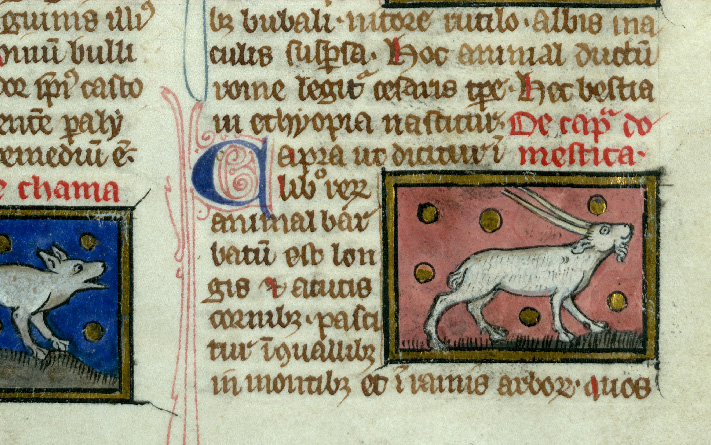 guinis illiꝰ
omnū bulli
dor spĩ casto
ente paly
emediū ē·
e chama
bꝫ bubali · nitore rutilo · albis ma
culis suspsa · Hoc animal ductū
rome legitᷣ cesaris tꝑe · Hec bestia
in ethyopia nascitur · De capᵃ do
Capra ut dicitur ī mestica ·
libº reꝝ
animal bar
batū est lon
gis ⁊ acutis
cornibꝫ · pasci
tur ī quallibꝫ
in montibꝫ et ī ramis arboꝝ · quos